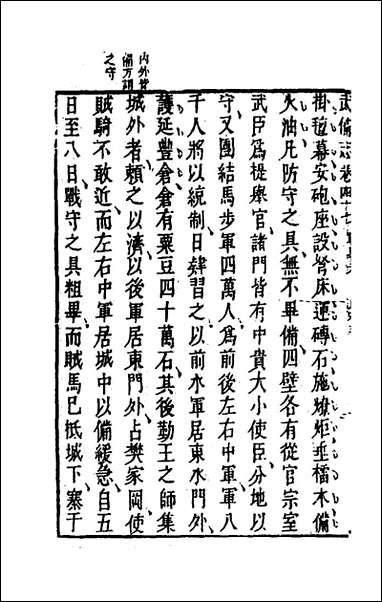 內外皆
備方謂
之守
武備志卷四十七
掛氊幕安砲座設弩床運磚石施燎炬垂檑木備
火油凡防守之具無不畢備四壁各有從官宗室
武臣爲提舉官諸門皆有中貴大小使臣分地以
守又團結馬步軍四萬人爲前後左右中軍軍八
千人將以統制日肄習之以前水軍居東水門外
護延豐倉倉有粟豆四十萬石其後勤王之師集
城外者賴之以濟以後軍居東門外占樊家岡使
賊騎不敢近而左右中軍居城中以備緩急自五
日至八日戰守之具粗畢而賊馬已抵城下寨于